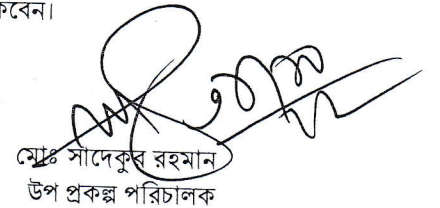 কবেন।
মোঃ সাদেকুর রহমান
উপ প্রকল্প পরিচালক